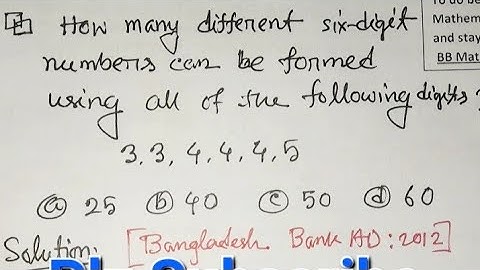 How many different six-digit
numbers can be formed
using all of the following digits?
3, 3, 4, 4, 4, 5
ⓐ 25 ⓑ 40 ⓒ 50 ⓓ 60
Solution: [Bangladesh Bank AD: 2012]
Mathem
and stay
BB Mat